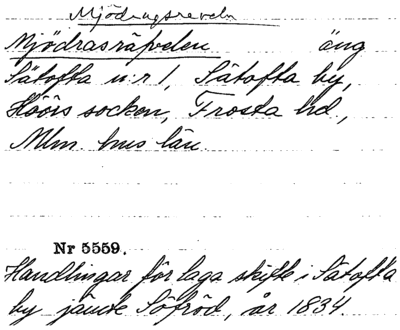 Mjödragsreveln
Mjödrasräfvelen äng
Sätofta n:r 1, Sätofta by,
Höörs socken, Frosta hd,
Mlm. hus län.
Nr 5559.
Handlingar för laga skifte i Sätofta
by jämte Söfröd, år 1834.